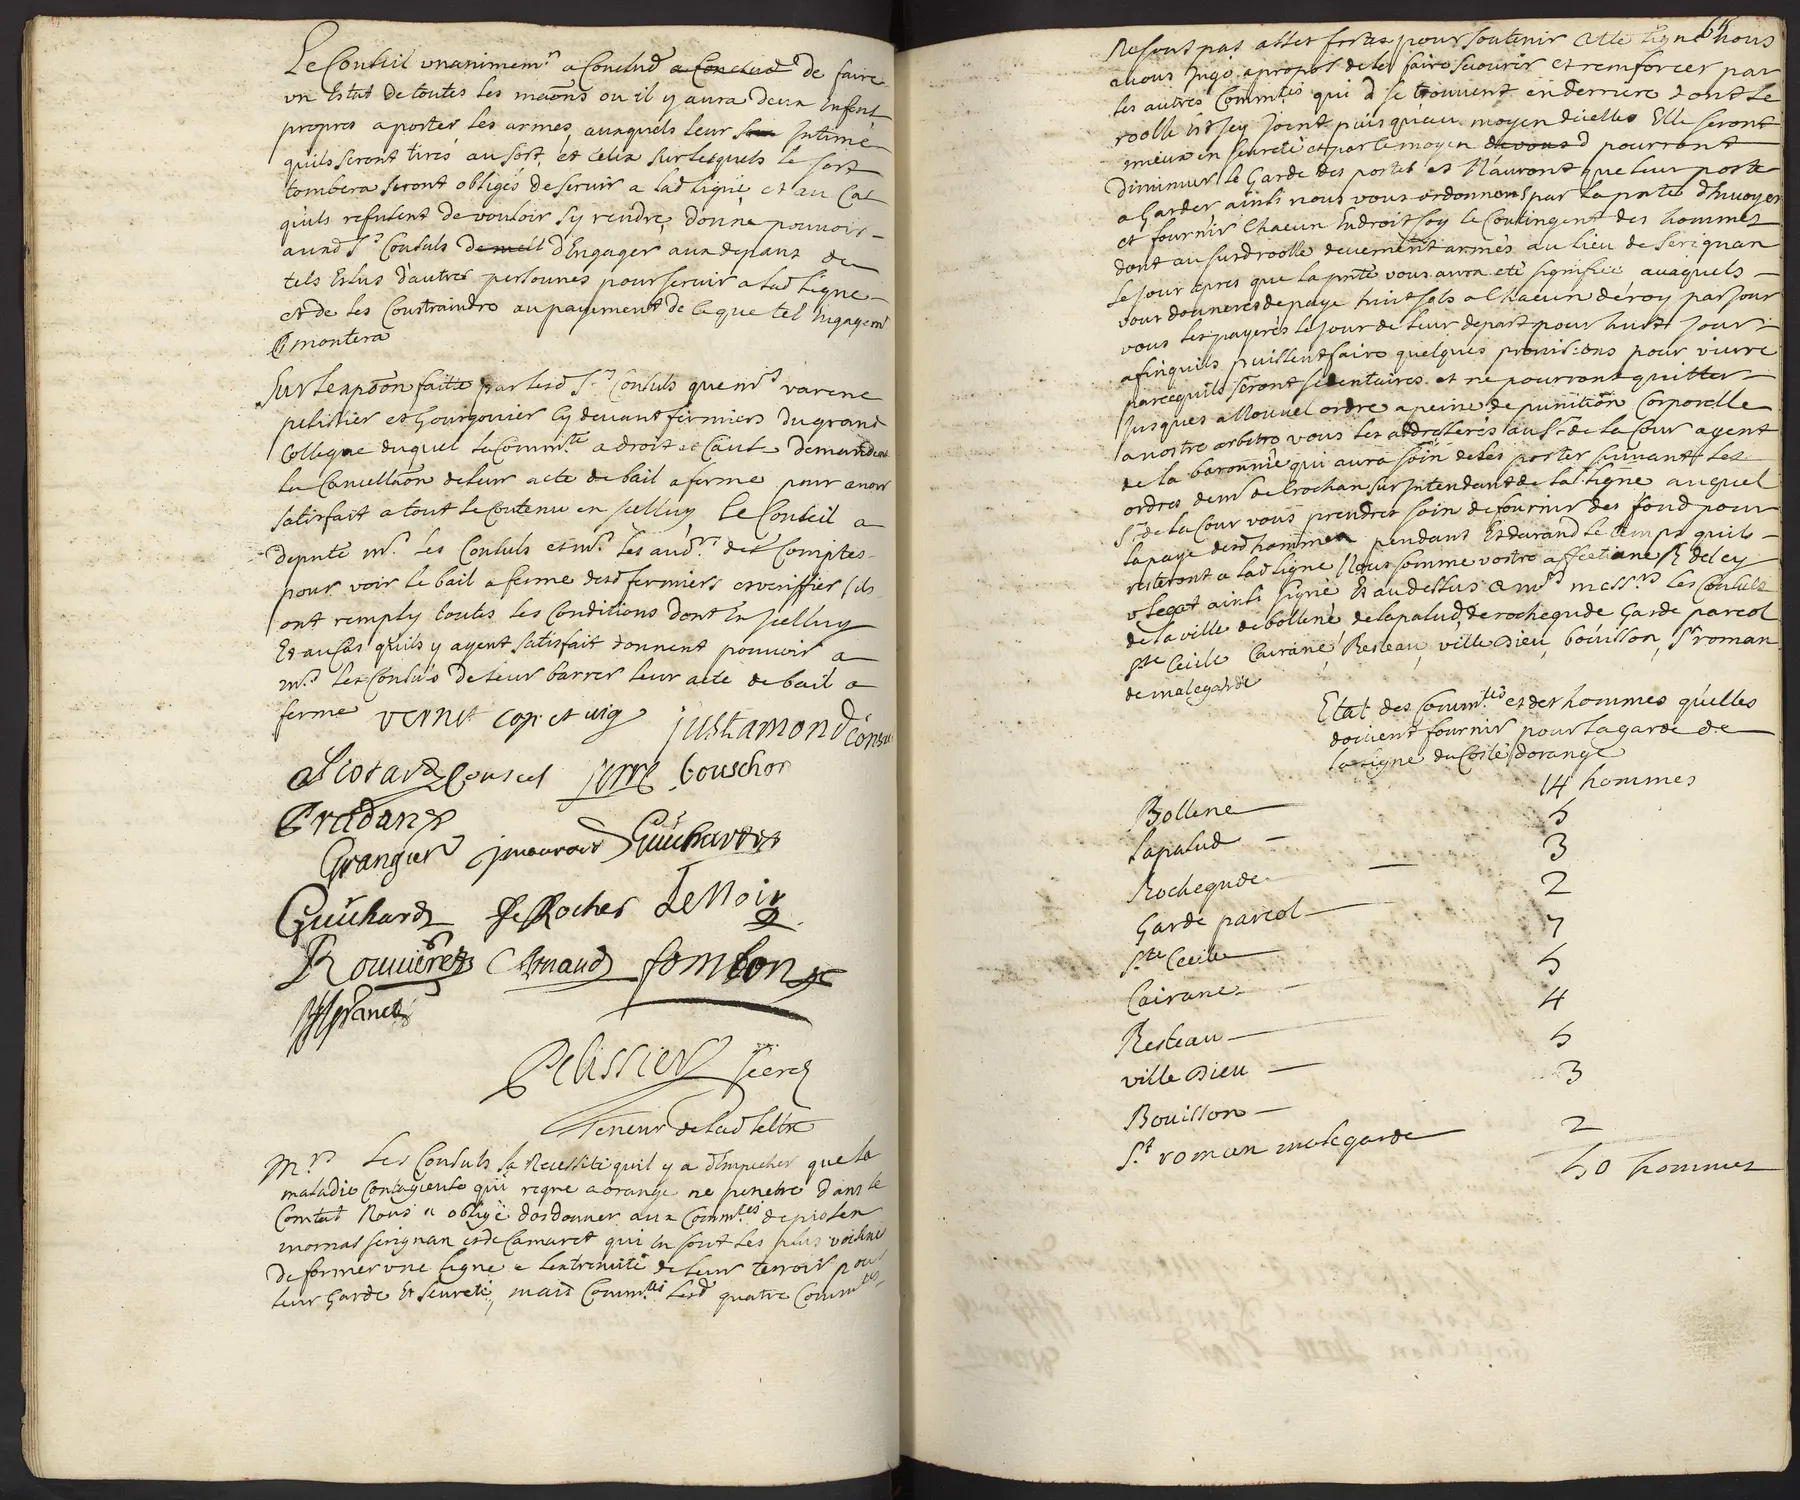 Le Conseil unanimemt a Conclud a Conclud de faire
un Estat de toutes les maõns ou il y aura deux Enfent
propres a porter les armes, auxquels leur sera Intimé
quils seront tirés au sort, et celix sur lesquels le sort
tombera seront obligés de servir a lad ligne et au Cas
quils refusent de vouloir sy rendre, donne pouvoir
auxd Srs Consuls d'Engager aux depans de
tels Eslus d'autres personnes pour servir a lad Ligne
et de les Contraindre au payement de ce que tel Engagemt
montera
Sur la põon faite par lesd Srs Consuls que mrs varene
pelissier et Gourgonier cy devant fermiers du grand
College duquel la Commte a droit et Cause demandent
La Cancellaõn de leur acte de bail a ferme pour avoir
satisfait a tout le Contenu en Jcelluy Le Conseil a
deputé mrs les Consuls et mrs les audrs des Comptes
pour voir le bail a ferme desd fermiers et veriffier sils
ont remply toutes les Conditions dont En Jcelluy
Et au Cas quils y ayent satisfait donnent pouvoir a
mrs les Consuls de leur barrer leur acte de bail a
ferme vernet cap. et vig justamond Consul
aSicard Consul pierre bouschon
Pradanes
Granger Guichard
Guichard De Rocher LeNoir
Rouvière Arnaud fombon
france
Pelissier secre
Teneur de lad lettre
Mrs Les Consuls la Necessité quil y a d'Empecher que la
maladie Contagieuse qui regne a orange ne penetre dans le
Comtat Nous a obligé dordonner aux Commtes de piolen
mornas serignan et de Camaret qui en sont les plus voisines
de former une ligne a lextremité de leur terroir pour
leur Garde Et seureté, mais Comm lesd quatre Commtes
64
Ne sont pas asses fortes pour soutenir cette ligne Nous
avons Jugé apropos de les faire secourir et remforcer par
les autres Commtes qui se trouvent en derriere dont le
roolle est Jcy Joint puis quau moyen dicelles Elle seront
mieux en seureté et par ce moyen pourront
diminuer le Garde des portes et N'auront que leur porte
a Garder ainsi nous vous ordonnons par la pnte d'Envoyer
et fournir Chacun Endroit soy le Contingent des hommes
dont au susd roolle deuement armés au lieu de Serignan
Le Jour apres que la pnte vous aura eté signifiée auxquels
vous donnerés de paye huit sols a Chacun de roy par Jour
vous les payerés le Jour de leur depart pour huit Jours
afinquils puissent faire quelques provisions pour vivre
parcequils seront sedentaires et ne pourront quitter
Jusques a Nouvel ordre a peine de punition Corporelle
a nostre arbitre vous les addresserés au Sr de la Cour agent
de la baronnie qui aura soin de les porter suivant les
ordres de mr de Crochan surIntendant de la ligne auquel
Sr de la Cour vous prendrés soin de fournir des fond pour
la paye desd hommes pendant Et durand le temps quils
resteront a lad ligne Nous somme vostre affectioné R deley
vlegat ainsi signé Et au dessus a mrs messrs les Consuls
de la ville de bollene de lapalud, de rochegude Garde pareol
Ste Cecile Cairane, Resteau, ville dieu, boüisson, St roman
de malegarde
Etat des Commtes et des hommes quelles
doivent fournir pour la garde de
la ligne du Costé dorange
Bollene 14 hommes
Lapalud 5
Rochegude 3
Garde pareol 2
Ste Cecile 7
Cairane 5
Resteau 4
ville Dieu 5
Bouisson 3
St roman malegarde 2
50 hommes